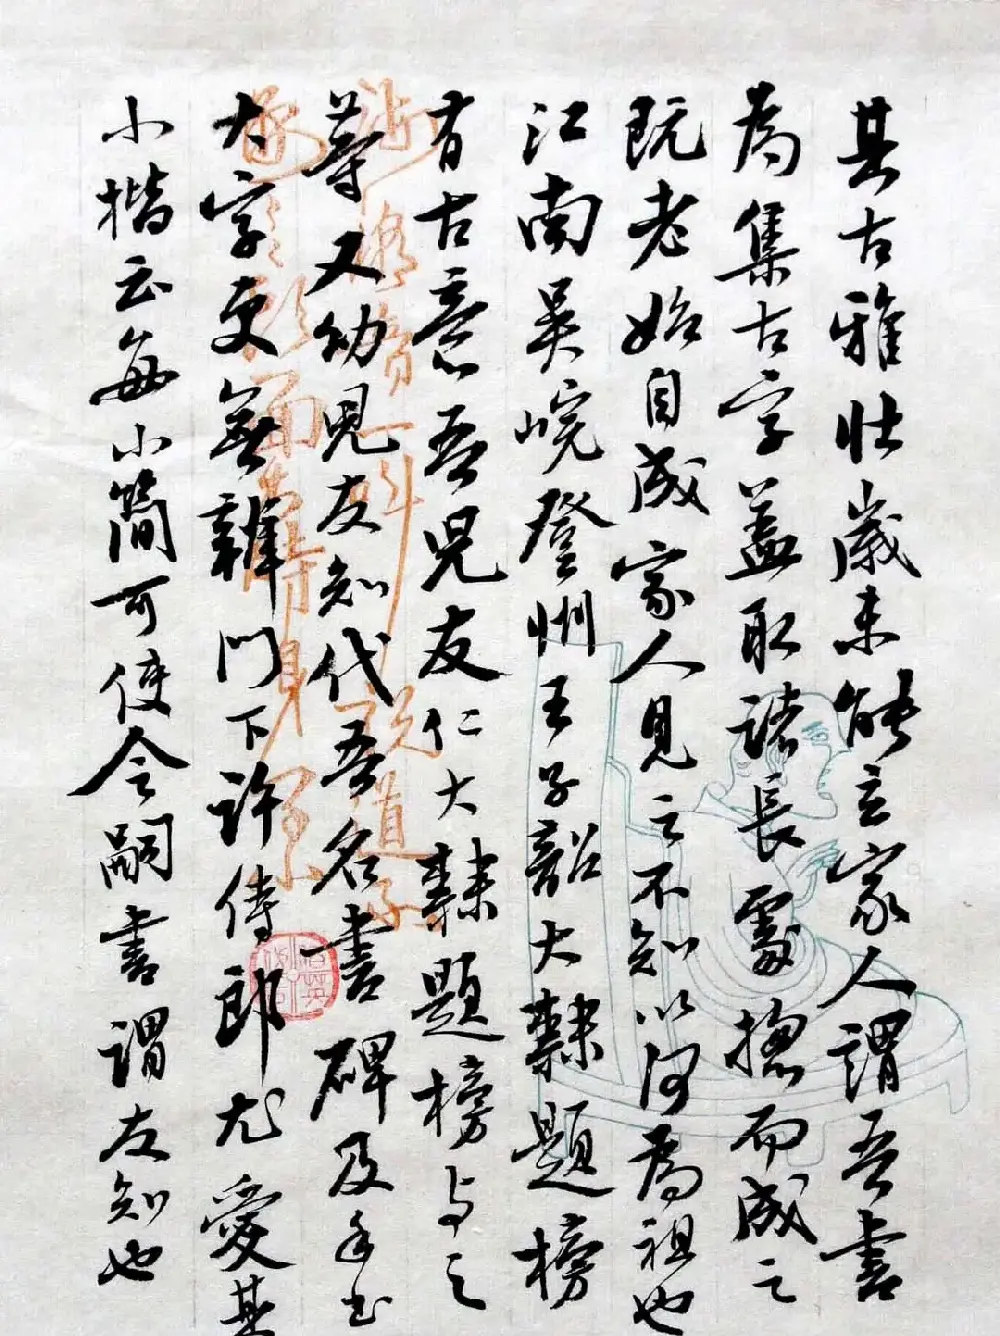 其古雅壮歲未能立家人謂吾書
為集古字盖取諸長處揔而成之
既老始自成家人見之不知以何為祖也
江南吳皖登州王子韶大隸題榜
有古意吾兒友仁大隸題榜与之
等又幼兒友知代吾名書碑及手書
大字更無辨門下許侍郎尤愛其
小楷云每小簡可使令嗣書謂友知也